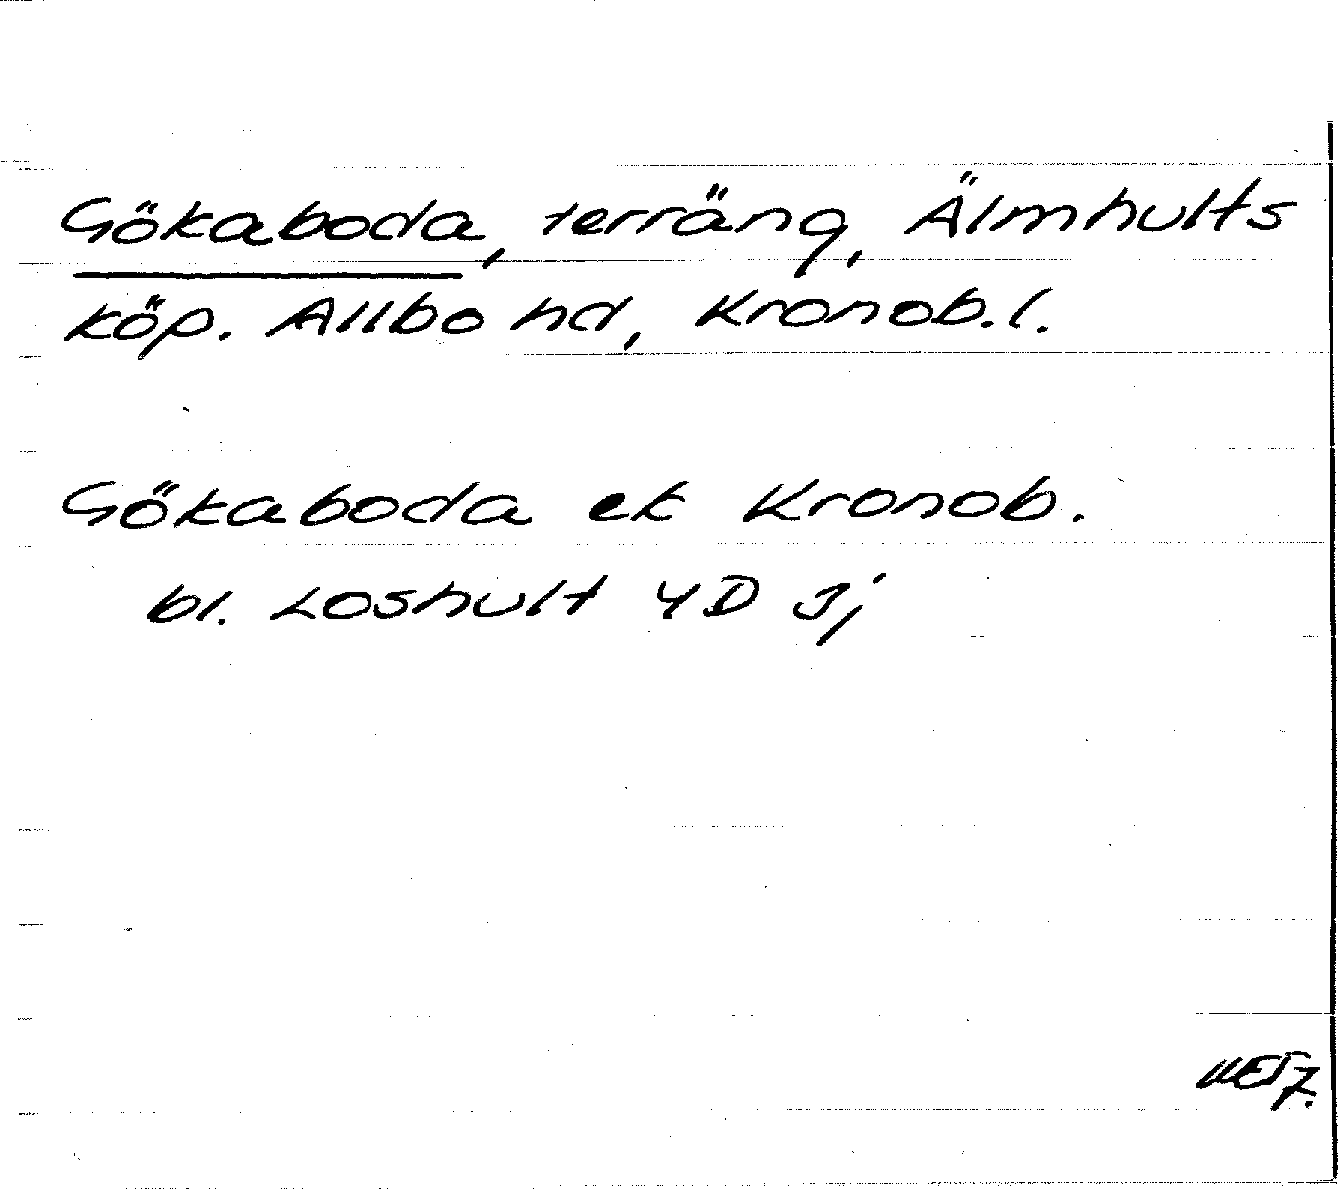 Gökaboda, terräng, Älmhults
köp. Allbo hd, Kronob. l.
Gökaboda ek Kronob.
bl. Loshult 4D Sj